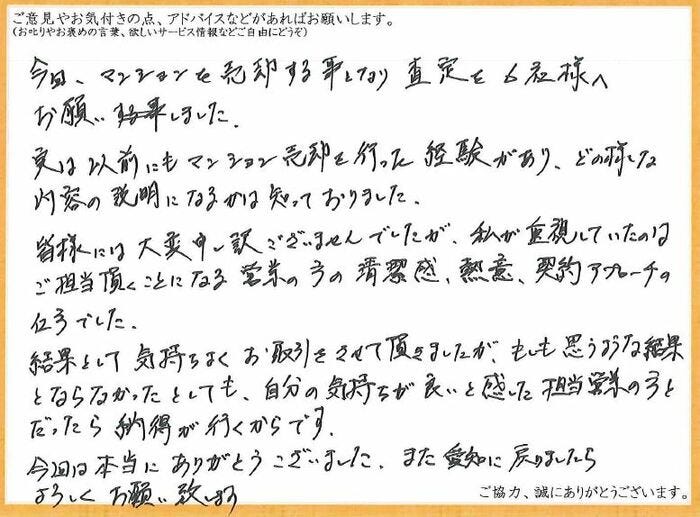 ご意見やお気付きの点、アドバイスなどがあればお願いします。
(お叱りやお褒めの言葉、欲しいサービス情報などご自由にどうぞ)
今回、マンションを売却する事となり 査定を6社様へ
お願いしました。
実は以前にもマンション売却を行った経験があり、どの様な
内容の説明になるかは知っておりました。
皆様には大変申し訳ございませんでしたが、私が重視していたのは
ご担当頂くことになる営業の方の清潔感、熱意、契約アプローチの
仕方でした。
結果として気持ちよくお取引をさせて頂きましたが、もしも思うような結果
とならなかったとしても、自分の気持ちが良いと感じた担当営業の方と
だったら納得が行くからです。
今回は本当にありがとうございました。また愛知に戻りましたら
よろしくお願い致します
ご協力、誠にありがとうございます。